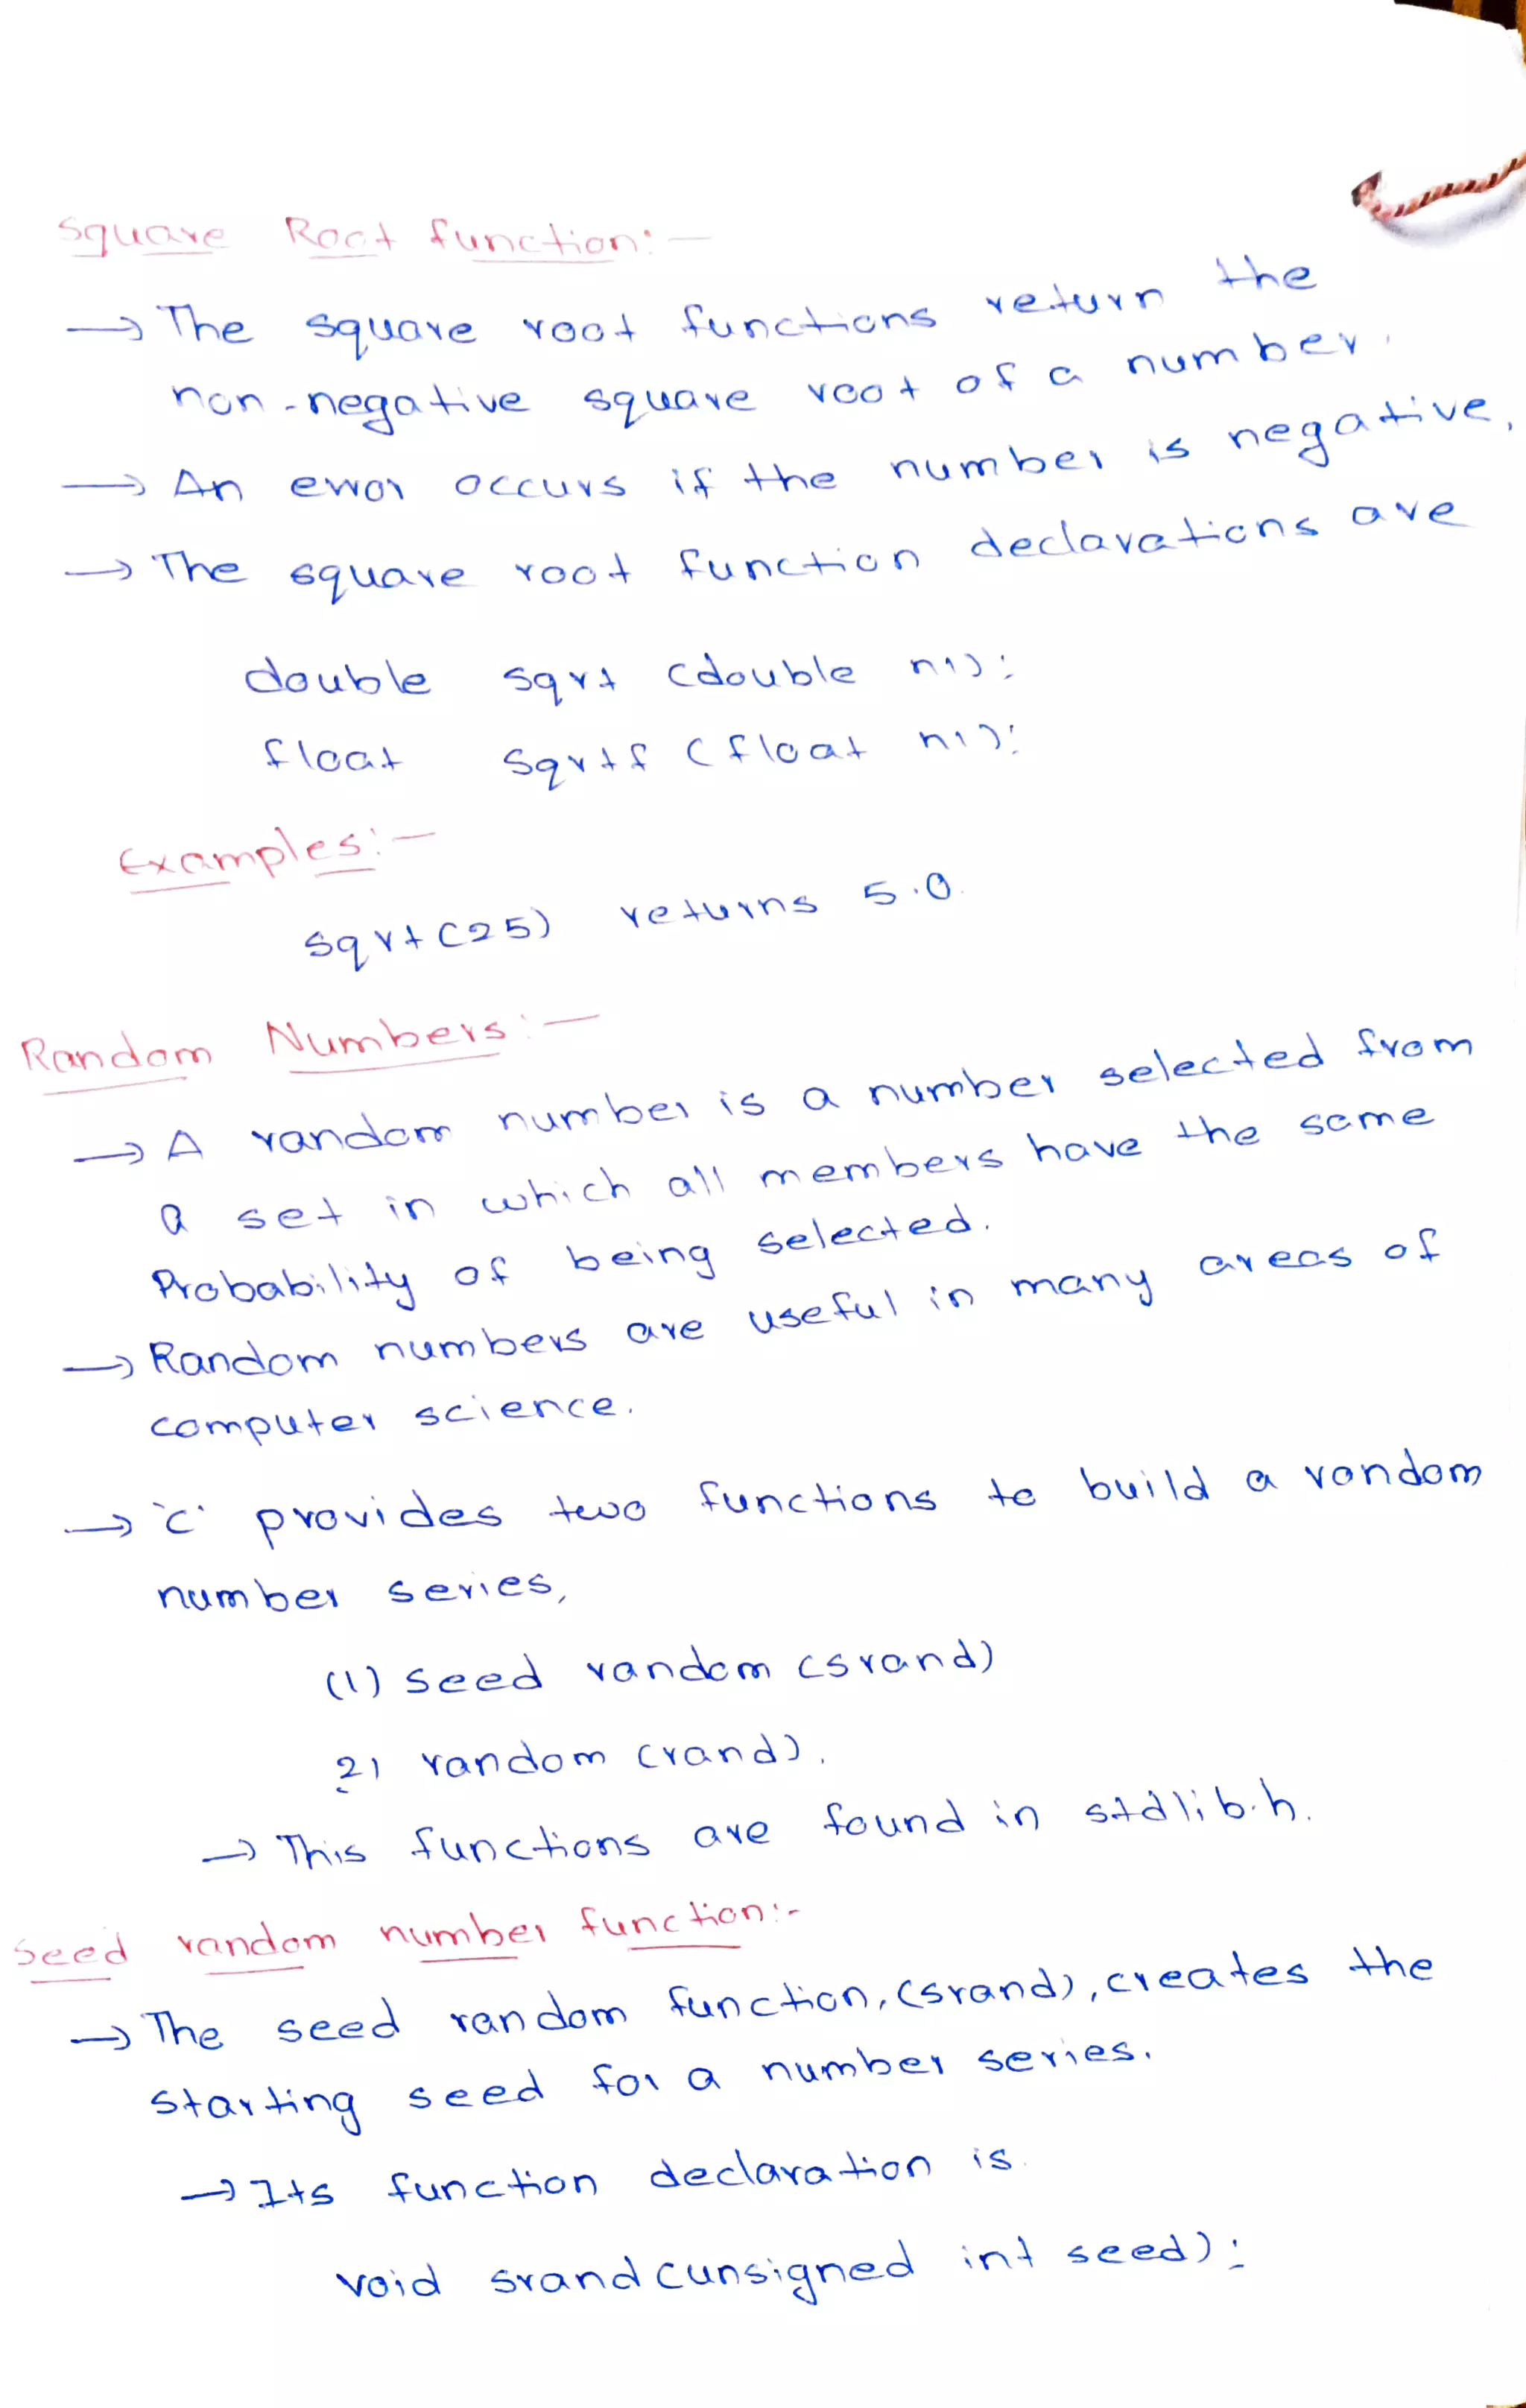 Square Root function:-
→ The square root functions return the
non-negative square root of a number.
→ An error occurs if the number is negative,
→ The square root function declarations are
double sqrt (double n1);
float sqrtf (float n1);
Examples:-
sqrt(25) returns 5.0.
Random Numbers:-
→ A random number is a number selected from
a set in which all members have the same
Probability of being selected.
→ Random numbers are useful in many areas of
computer science.
→ 'C' provides two functions to build a random
number series,
(1) Seed random (srand)
2) random (rand).
→ This functions are found in stdlib.h.
Seed random number function:-
→ The seed random function, (srand), creates the
starting seed for a number series.
→ Its function declaration is.
void srand (unsigned int seed);